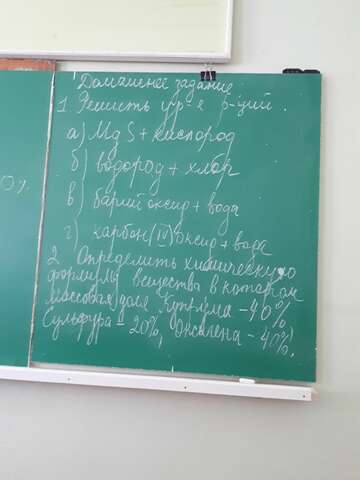 0%
Домашнее задание
1. Решить ур-е р-ций.
а) MgS + кислород
б) водород + хлор
в) барий оксид + вода
г) карбон (IV) оксид + вода
2. Определить химическую
формулу вещества в котором
массовая доля Купрума - 40%,
Сульфура - 20%, Оксигена - 40%.